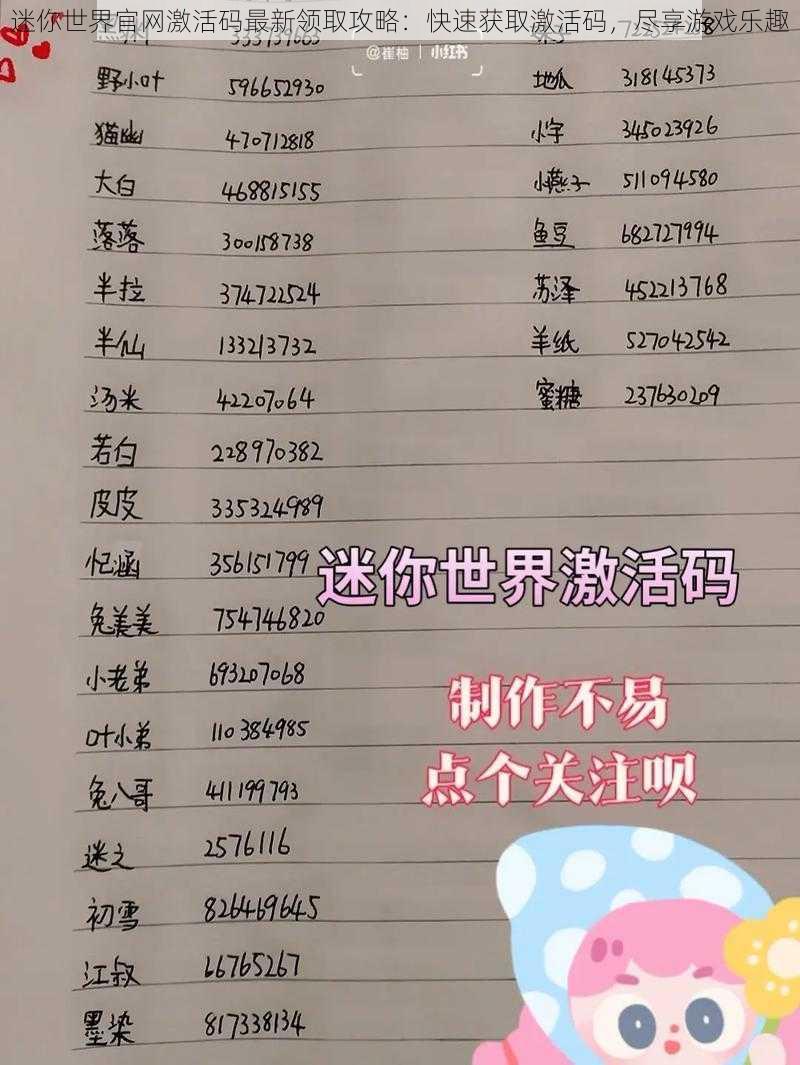 迷你世界官网激活码最新领取攻略：快速获取激活码，尽享游戏乐趣
@崔柚 | 小红书
野小叶 596652930
猫幽 470712818
大白 468815155
落落 300158738
半拉 374722524
半仙 133213732
汤米 42207064
若白 228970382
皮皮 335324989
忆涵 356151799
兔美美 754746820
小老弟 693207068
叶小弟 110384985
兔八哥 411199793
迷之 2576116
初雪 826469645
江叔 66765267
墨染 817338134
地瓜 318145373
小字 345023926
小燕子 511094580
鱼豆 682727994
苏泽 452213768
羊纸 527042542
蜜糖 237630209
迷你世界激活码
制作不易
点个关注呗